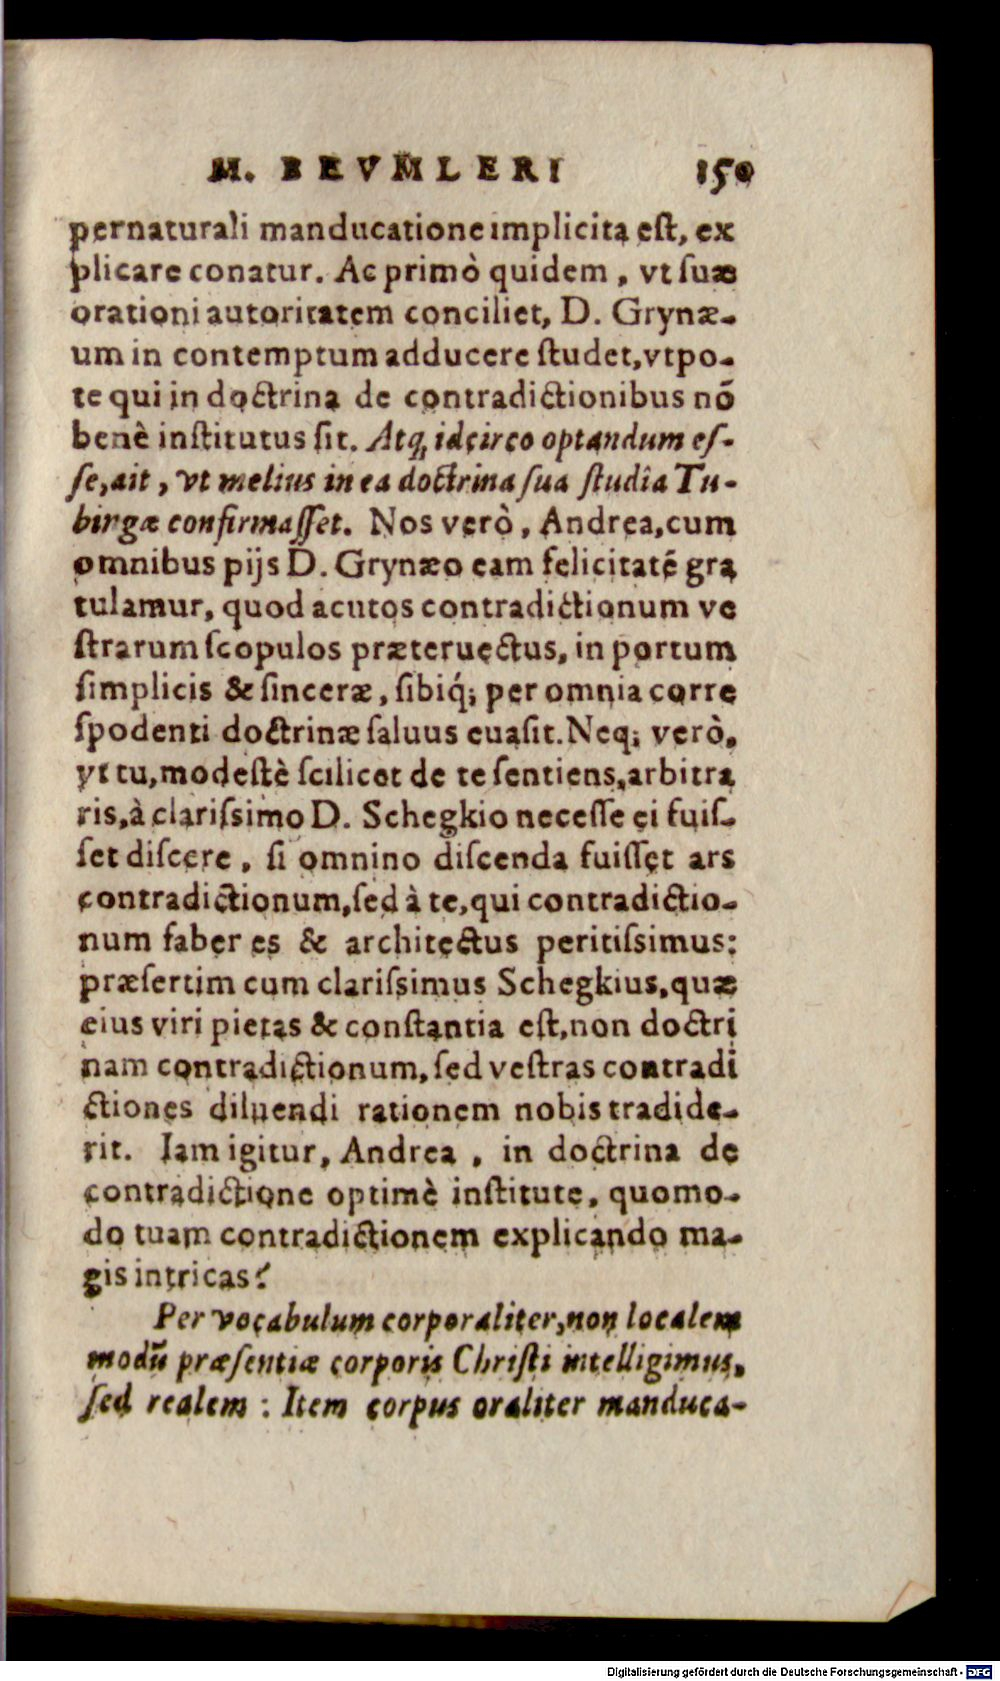 M. BEVMLERI 150
pernaturali manducatione implicita eſt, ex
plicare conatur. Ac primò quidem, vt ſuæ
orationi autoritatem conciliet, D. Grynæ-
um in contemptum adducere ſtudet, vtpo-
te qui in doctrina de contradictionibus nõ
benè inſtitutus ſit. Atq́; idcirco optandum eſ-
ſe, ait, vt melius in ea doctrina ſua ſtudia Tu-
birgæ confirmaſſet. Nos verò, Andrea, cum
omnibus pijs D. Grynæo eam felicitatẽ gra
tulamur, quod acutos contradictionum ve
ſtrarum ſcopulos præteruectus, in portum
ſimplicis & ſinceræ, ſibiq́; per omnia corre
ſpodenti doctrinæ ſaluus euaſit. Neq; verò,
vt tu, modeſtè ſcilicet de te ſentiens, arbitra
ris, à clariſsimo D. Schegkio neceſſe ei fuiſ-
ſet diſcere, ſi omnino diſcenda fuiſſet ars
contradictionum, ſed à te, qui contradictio-
num faber es & architectus peritiſsimus:
præſertim cum clariſsimus Schegkius, quæ
eius viri pietas & conſtantia eſt, non doctri
nam contradictionum, ſed veſtras contradi
ctiones diluendi rationem nobis tradide-
rit. Iam igitur, Andrea, in doctrina de
contradictione optimè inſtitute, quomo-
do tuam contradictionem explicando ma-
gis intricas?
Per vocabulum corporaliter, non localem
modũ præſentiæ corporis Chriſti intelligimus,
ſed realem: Item corpus oraliter manduca-
Digitalisierung gefördert durch die Deutsche Forschungsgemeinschaft - DFG